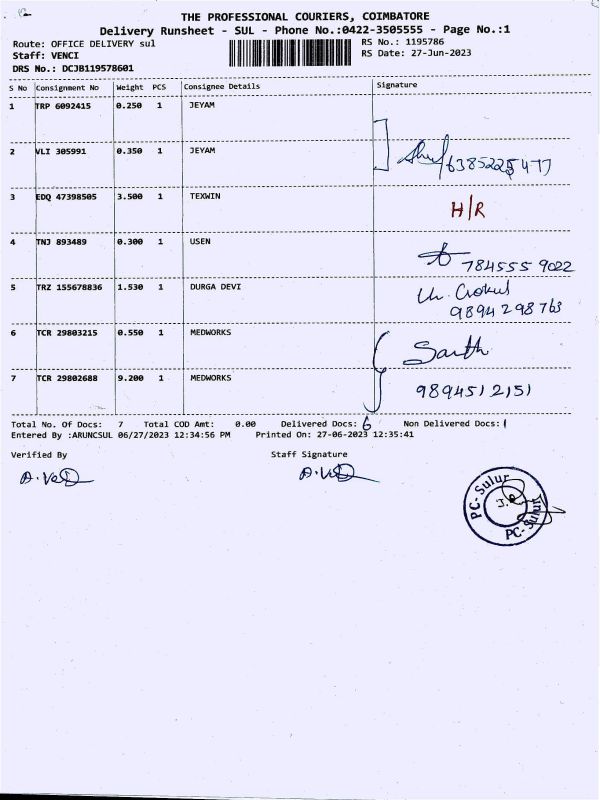 THE PROFESSIONAL COURIERS, COIMBATORE
Delivery Runsheet - SUL - Phone No.:0422-3505555 - Page No.:1
Route: OFFICE DELIVERY sul RS No.: 1195786
Staff: VENCI RS Date: 27-Jun-2023
DRS No.: DCJB119578601
S No Consignment No Weight PCS Consignee Details Signature
1 TRP 6092415 0.250 1 JEYAM
2 VLI 305991 0.350 1 JEYAM 6385225477
3 EDQ 47398505 3.500 1 TEXWIN H/R
4 TNJ 893489 0.300 1 USEN 784555 9022
5 TRZ 155678836 1.530 1 DURGA DEVI
9894298763
6 TCR 29803215 0.550 1 MEDWORKS Sarth
7 TCR 29802688 9.200 1 MEDWORKS 9894512151
Total No. Of Docs: 7 Total COD Amt: 0.00 Delivered Docs: 6 Non Delivered Docs: 1
Entered By :ARUNCSUL 06/27/2023 12:34:56 PM Printed On: 27-06-2023 12:35:41
Verified By Staff Signature
PC-Sulur
PC-Sulur